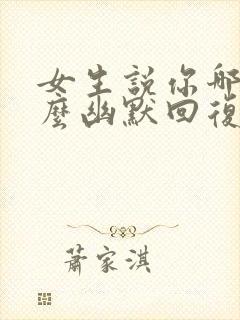 女生説你哪
麼幽默回復
蕭家淇